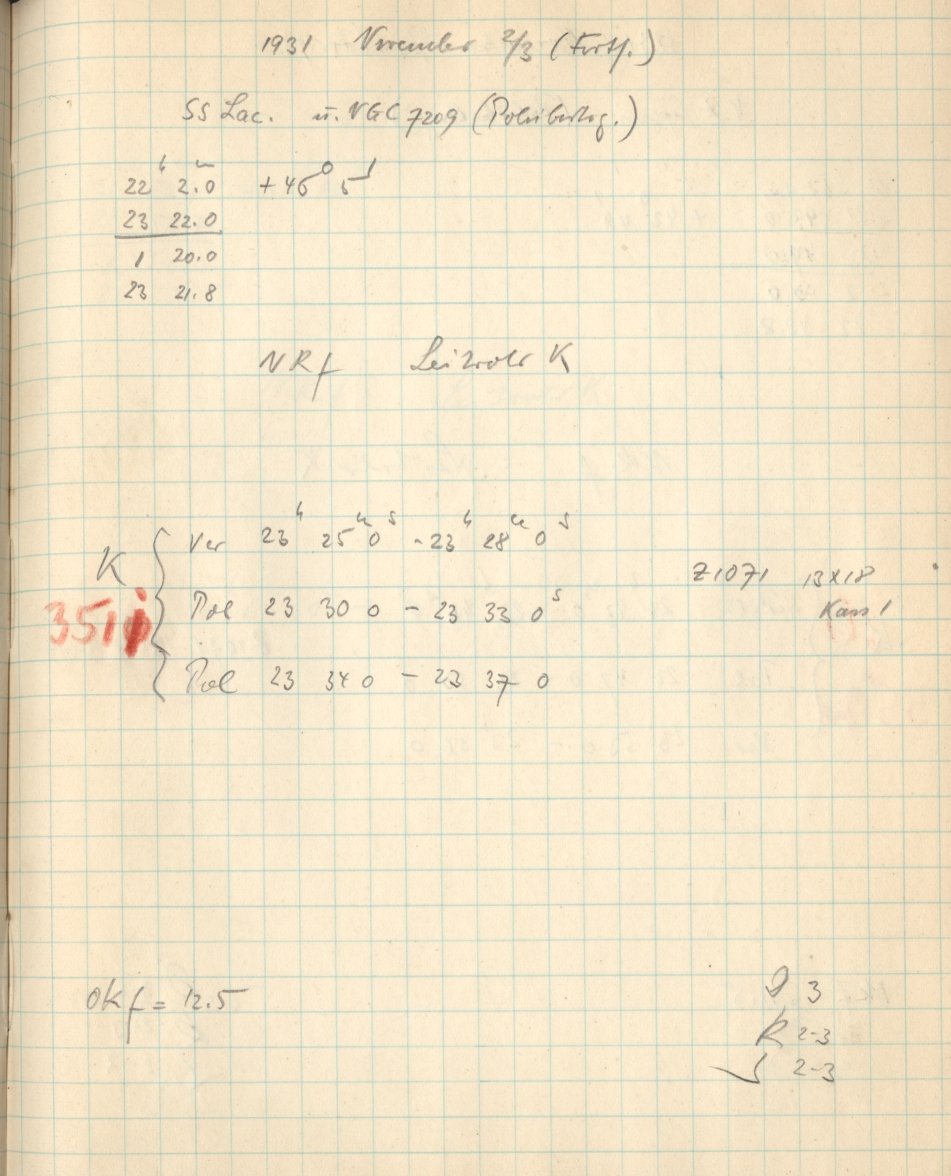 1931 November 2/3 (Forts.)
SS Lac. u. NGC 7209 (Polübertrg.)
22ʰ 2.0ᵐ +46° 5'
23 22.0
1 20.0
23 21.8
NRf Leitrohr K
K
351
Var 23ʰ 25ᵐ 0ˢ - 23ʰ 28ᵐ 0ˢ
Pol 23 30 0 - 23 33 0ˢ
Pol 23 34 0 - 23 37 0
Z1071 13x18
Kass 1
OKf = 12.5
3
R 2-3
2-3